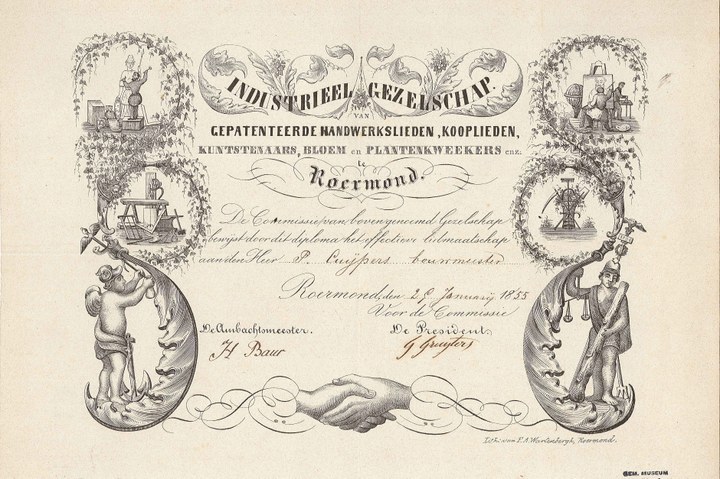 INDUSTRIEEL GEZELSCHAP.
VAN
GEPATENTEERDE HANDWERKSLIEDEN, KOOPLIEDEN,
KUNSTENAARS, BLOEM en PLANTENKWEEKERS enz:
te
Roermond.
De Commissie van bovengenoemd Gezelschap
bewijst door dit diploma het effectieve lidmaatschap
aan den Heer P. Cuijpers bouwmeester
Roermond, den 29 Januarij 1855
Voor de Commissie
De Ambachtsmeester. De President,
H Baur G Gruyters
Lith. van P. A. Wartenbergh, Roermond.
GEM. MUSEUM